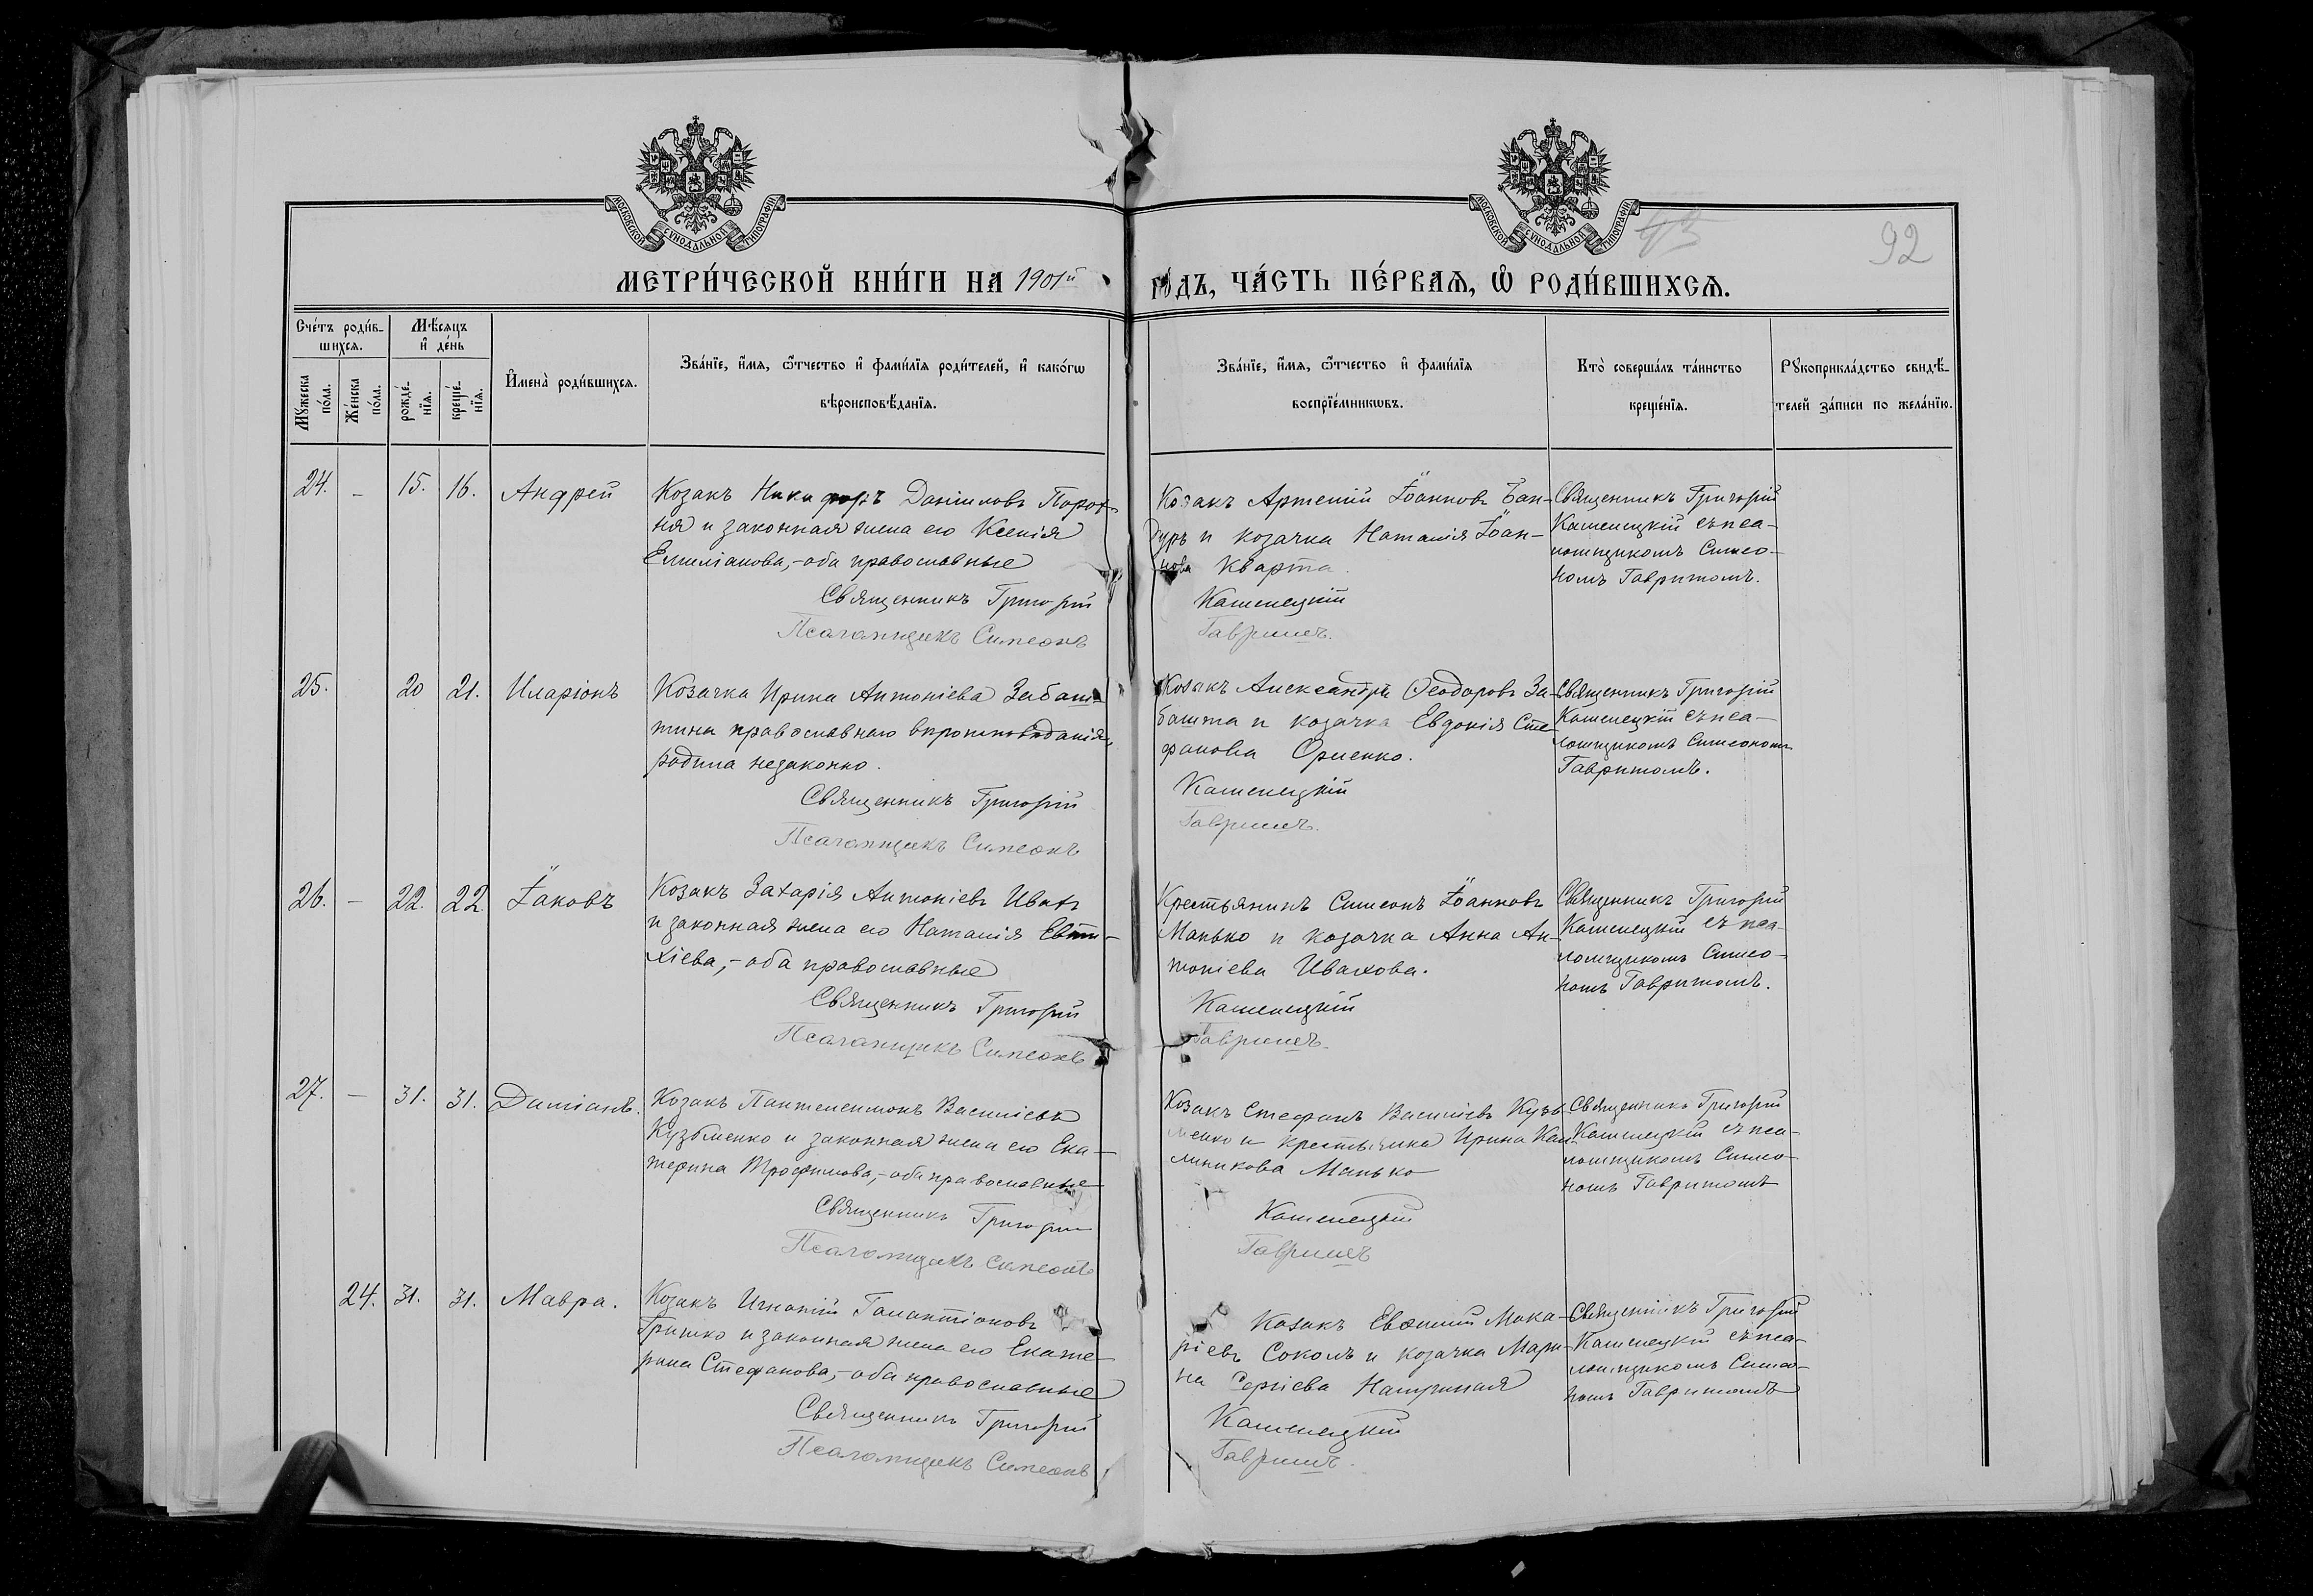 МОСКОВСКОЙ СѴНОДАЛЬНОЙ ТИПОГРАФІИ
МОСКОВСКОЙ СѴНОДАЛЬНОЙ ТИПОГРАФІИ
92
МЕТРИ́ЧЕСКОЙ КНИ́ГИ НА 1901й ГО́ДЪ, ЧА́СТЬ ПЕ́РВАЯ, Ѡ҆ РОДИ́ВШИХСѦ.
Сче́тъ роди́в-
шихсѧ.
Мꙋ́жеска по́ла.
Же́нска по́ла.
Мѣ́сяцъ
и҆ де́нь
рожде́-
нїѧ.
креще́-
нїѧ.
И҆мена̀ роди́вшихсѧ.
Зва́нїе, и҆́мѧ, ѻ҆́тчество и҆ фами́лїѧ роди́телей, и҆ како́гѡ
вѣроисповѣ́данїѧ.
Зва́нїе, и҆́мѧ, ѻ҆́тчество и҆ фами́лїѧ
воспрїе́мникѡвъ.
Кто̀ соверша́лъ та́инство
креще́нїѧ.
Рꙋкоприкла́дство свидѣ́-
телей за́писи по жела́нїю.
24. – 15. 16. Андрей
Козакъ Никифоръ Даніиловъ Порох-
ня и законная жена его Ксенія
Емиліанова,- оба православные
Священникъ Григорій
Псаломщикъ Симеонъ
Козакъ Артемій Іоанновъ Бан-
дуръ и козачка Наталія Іоан-
нова Кварта.
Каменецкій
Гавришъ.
Священникъ Григорій
Каменецкій съ пса-
ломщикомъ Симео-
номъ Гавришомъ.
25. 20 21. Иларіонъ
Козачка Ирина Антоніева Забаш-
тина православнаго вѣроисповѣданія,
родила незаконно.
Священникъ Григорій
Псаломщикъ Симеонъ
Козакъ Александръ Ѳеодоровъ За-
башта и козачка Евдокія Сте-
фанова Орленко.
Каменецкій
Гавришъ.
Священникъ Григорій
Каменецкій съ пса-
ломщикомъ Симеономъ
Гавришомъ.
26. – 22. 22. Іаковъ
Козакъ Захарія Антоніевъ Ивахъ
и законная жена его Наталія Евти-
хіева,- оба православные
Священникъ Григорій
Псаломщикъ Симеонъ
Крестьянинъ Симеонъ Іоанновъ
Манько и козачка Анна Ан-
тоніева Ивахова.
Каменецкій
Гавришъ.
Священникъ Григорій
Каменецкій съ пса-
ломщикомъ Симео-
номъ Гавришомъ.
27. – 31. 31. Даміанъ.
Козакъ Пантелеимонъ Василіевъ
Кузьменко и законная жена его Ека-
терина Трофимова,- оба православные
Священникъ Григорій
Псаломщикъ Симеонъ
Козакъ Стефанъ Василіевъ Кузь-
менко и крестьянка Ирина Кал-
линикова Манько
Каменецкій
Гавришъ
Священникъ Григорій
Каменецкій съ пса-
ломщикомъ Симео-
номъ Гавришомъ
24. 31. 31. Мавра.
Козакъ Игнатій Галактіоновъ
Гришко и законная жена его Екате-
рина Стефанова,- оба православные
Священникъ Григорій
Псаломщикъ Симеонъ
Козакъ Евѳимій Мака-
ріевъ Соколъ и козачка Мари-
на Сергіева
Каменецкій
Гавришъ.
Священникъ Григорій
Каменецкій съ пса-
ломщикомъ Симео-
номъ Гавришомъ